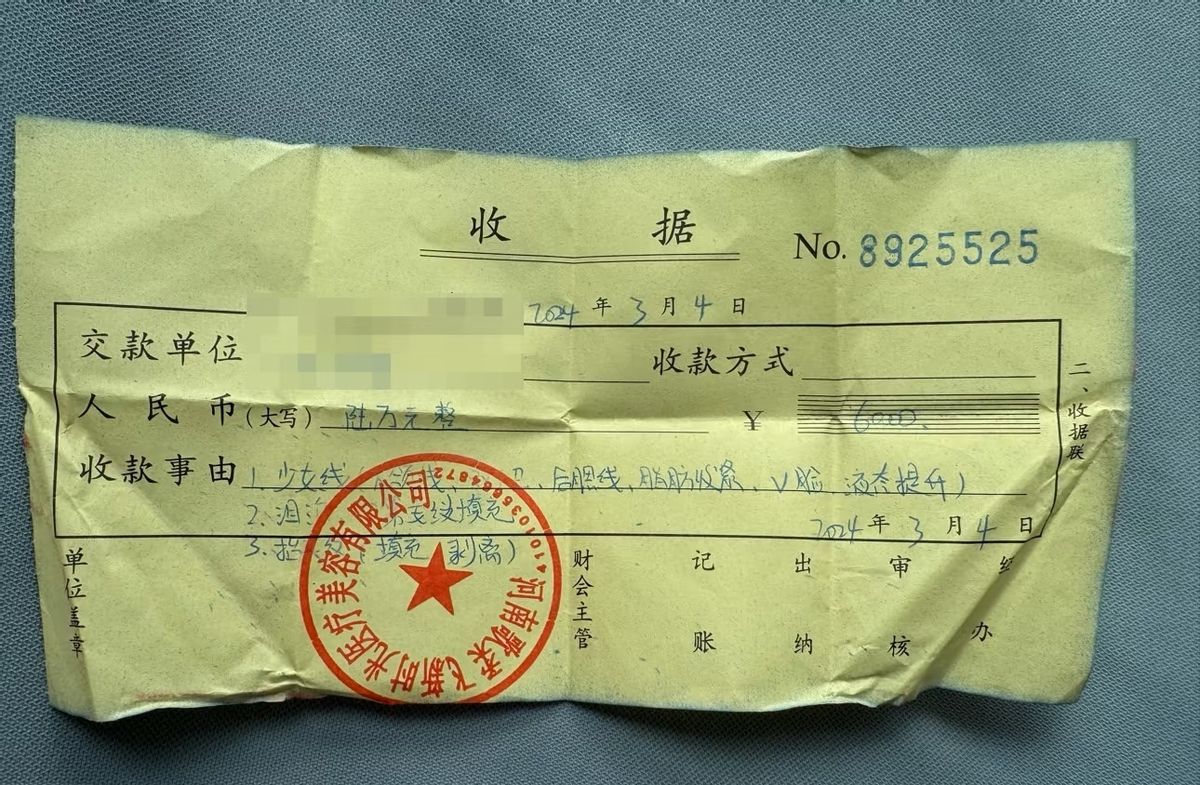 收 据
No. 8925525
2024 年 3 月 4 日
交款单位
收款方式
人民币(大写) 陆万元整
¥ 6000.
收款事由 1、少女线 后腮线、脂肪收紧、V脸 液态提升)
2、泪 纹填充
3、 填充 剥离)
2024 年 3 月 4 日
二、收据联
单位盖章
财会主管
记账
出纳
审核
经办
河南歌柔飞新时光医疗美容有限公司